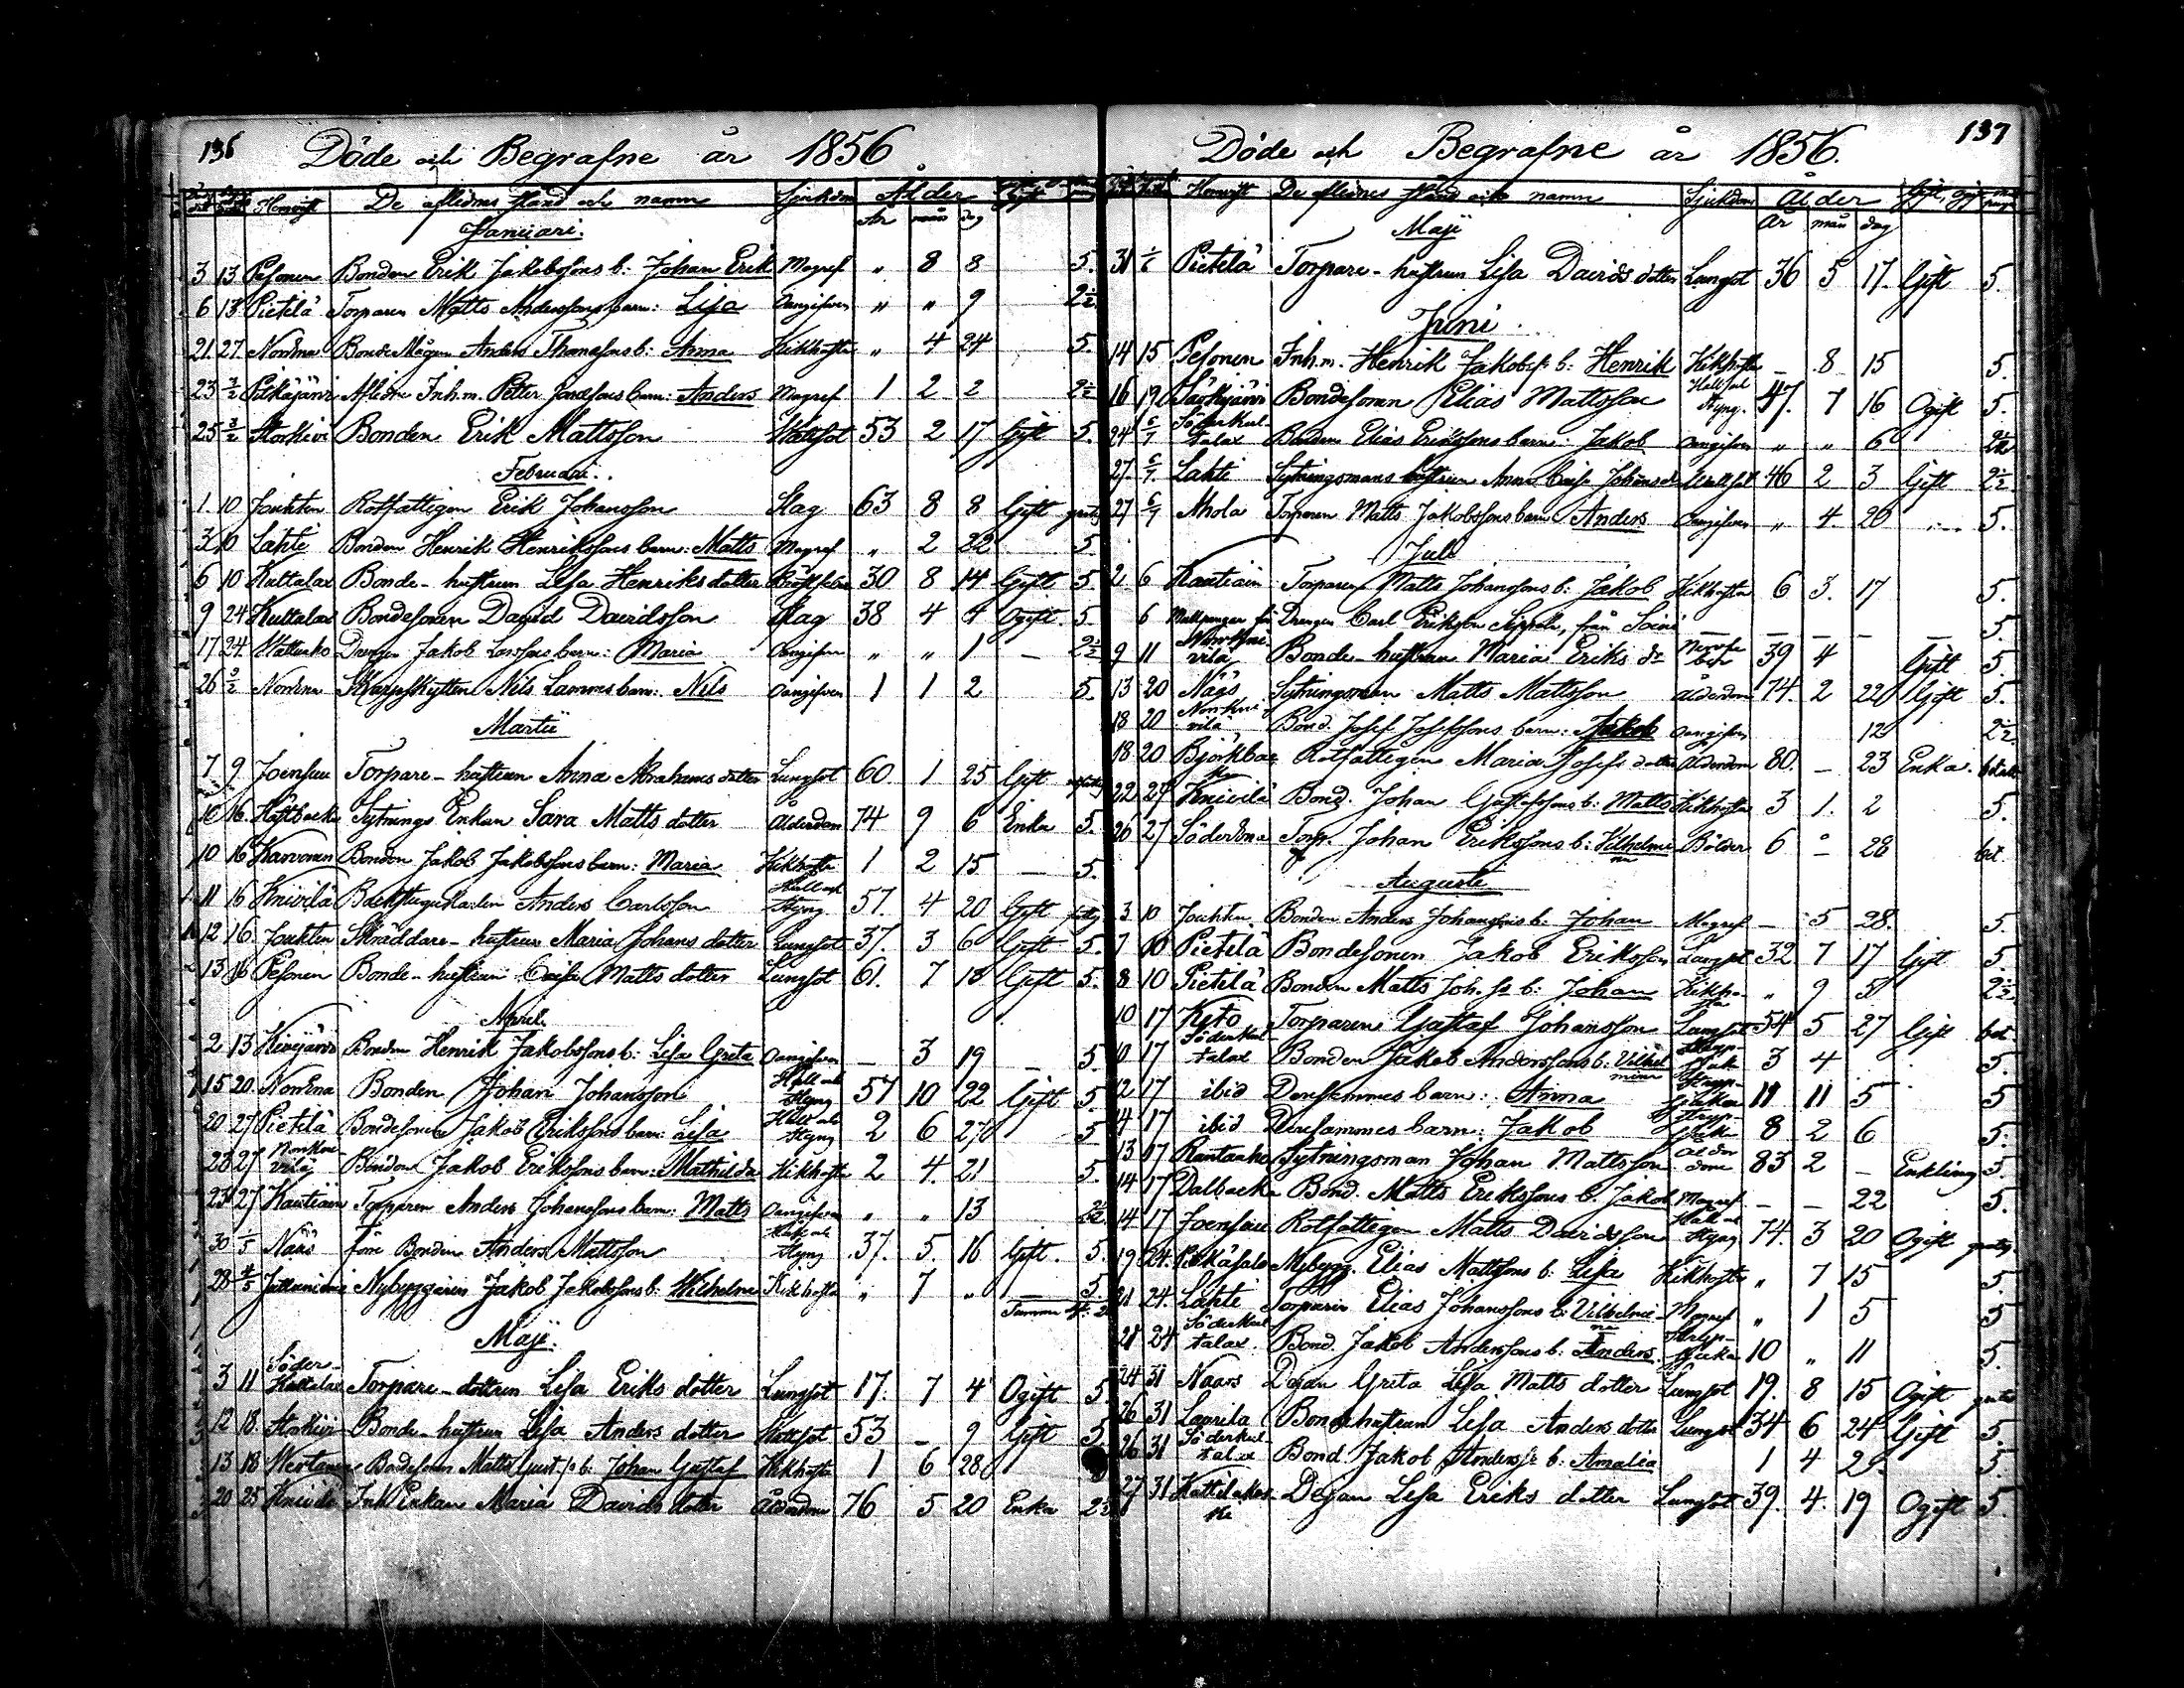 136
Döde och Begrafne år 1856.
Hemvist De aflednes stånd och namn Sjukdom Ålder Gift
År mån dag
Januari.
3 13 Pesonen Bonden Erik Jakobssons b: Johan Erik Magref " 8 8 5.
6 13 Pietilä Torparen Matts Anderssons barn: Lisa Oangifven " " 9 2½
21 27 Bonde Mågen Anders Thomassons b: Anna Kikhosta " 4 24 5.
23 3/2 Aflidne Inh.m. Petter barn: Anders Magref 1 2 2 2½
25 3/2 Bonden Erik Mattsson Wattsot 53 2 17 Gift 5.
Februari.
1 10 Joukten Rotfattigen Erik Johansson Slag 63 8 8 Gift gratis
3 10 Lahti Bonden Henrik Henrikssons barn: Matts Magref " 2 22 5
6 10 Kultalax Bonde-hustrun Lisa Henriks dotter 30 8 14 Gift 5.
9 24 Kultalax Bondesonen David Davidsson Slag 38 4 4 Ogift 5.
17 24 Drengen Jakob barn: Maria Oangifven " " 1 — 2½
26 3/2 Nils Lammes barn: Nils Oangifven 1 1 2 5.
Martii
7 9 Joensuu Torpare-hustrun Anna Abrahams dotter Lungsot 60 1 25 Gift
16 Sytnings Enkan Sara Matts dotter Ålderdom 74 9 6 Enka 5.
10 16 Karvonen Bonden Jakob Jakobssons barn: Maria Kikhosta 1 2 15 — 5.
11 16 Knivilä Backstugukarlen Anders Carlsson Håll och Styng 57. 4 20 Gift
12 16. Joukten Skräddare-hustrun Maria Johans dotter Lungsot 37. 3 6 Gift 5.
13 16 Pesonen Bonde-hustrun Caisa Matts dotter Lungsot 61. 7 13 Gift 5.
April.
2 13 Bonden Henrik Jakobssons b: Lisa Greta Oangifven — 3 19 — 5.
15 20. Bonden Johan Johansson Håll och Styng 57 10 22 Gift 5
20 27 Pietilä Bondesonen Jakob Erikssons barn: Lisa Håll och Styng 2 6 27 5
23 27 Bonden Jakob Erikssons barn: Mathilda Kikhosta 2 4. 21 5.
23 27 Kautiain Torparen Anders Johanssons barn: Matts Oangifven " " 13 2½
30 1/5 Näs förre Bonden Anders Mattsson Håll och Styng 37. 5. 16 Gift. 5.
28 4/5 Nybyggaren Jakob Jakobssons b: Wilhelmi Kikhosta " 7 " — 5
Summa
Maji.
3 11 Söder-Kultalax Torpare-dottren Lisa Eriks dotter Lungsot 17. 7 4 Ogift 5
12 18. Bonde-hustrun Lisa Anders dotter Wattsot 53 — 9 Gift 5
13 18 Bondesonen Matts Gust.ss b: Johan Gustaf Kikhosta 1 6 28
20 25 Inh Enkan Maria Davids dotter Ålderdom 76 5 20 Enka 2½
137
Döde och Begrafne år 1856.
Hemvist De aflednes stånd och namn Sjukdom Ålder
År mån dag
Maji
31 1/6 Pietilä Torpare-hustrun Lisa Davids dotter Lungsot 36 5 17. Gift 5.
Juni.
14 15 Pesonen Inh.m. Henrik Jakobss. b: Henrik Kikhosta — 8 15 5.
16 19 Bondesonen Elias Mattsson Håll och Styng. 47. 7 16 Ogift 5.
24 6/7 Söderkultalax Bonden Elias Erikssons barn: Jakob Oangifven " " 6 2½
27. 6/7 Lahti Sytningsmans hustrun Anna Caisa Johansd. 46 2 3 Gift 2½
27 6/7 Ahola Torparen Matts Jakobssons barn Anders Oangifven " 4. 20 5.
Juli
2 6 Kautiain Torparen Matts Johanssons b: Jakob Kikhosta 6 3. 17 5.
6 Drengen Carl Eriksson från Soini — — — — 5
9 11 Bonde-hustrun Maria Eriks dr 39 4 Gift 5.
13 20 Näs Sytningsman Matts Mattsson Ålderdom 74. 2 22 Gift 5.
18 20 Bond. Josef Josefssons barn: Jakob Oangifven 12 2½
18 20 Björkbac Rotfattigen Maria Josefs dotter Ålderdom 80. — 23 Enka.
22 27 Knivilä Bond. Johan Gustafssons b: Matts Kikhosta 3 1. 2 5.
26 27 Torp. Johan Erikssons b: Vilhelmina Bölder 6 — 28 bet
Augusti
3 10 Joukten Bonden Anders Johanssons b: Johan Magref — 5 28. 5.
7 10 Pietilä Bondesonen Jakob Eriksson Lungsot 32 7 17 Gift 5.
8 10 Pietilä Bonden Matts Joh. ss b: Johan Kikhosta " 9 5 2½
10 17 Keto Torparen Gustaf Johansson Lungsot 54 5 27 Gift bet
10. 17 Söderkultalax Bonden Jakob Anderssons b: Vilhelmina Strypsjuka 3 4 5.
12 17 ibid Densammes barn: Anna Strypsjuka 11 11 5 5
14 17 ibid Densammes barn: Jakob Strypsjuka 8 2 6 5.
13 17 Sytningsman Johan Mattsson Ålderdom 83 2 — Enkling 5.
14 17 Dalbacka Bond. Matts Erikssons b. Jakob Magref — — 22 5.
14 17 Joensuu Rotfattigen Matts Davidsson Håll och Styng 74. 3 20 Ogift gratis.
19 24. Nybygg. Elias Mattssons b: Lisa Kikhosta " 7 15 5.
21 24. Lahti Torparen Elias Johanssons b: Vilhelmina Magref " 1 5 5
21 24 Söderkultalax. Bond. Jakob Anderssons b: Anders. Strypsjuka 10 " 11 5.
24 31 Näs Dejan Greta Lisa Matts dotter Lungsot 19. 8 15 Ogift
26 31 Laurila Bondehustrun Lisa Anders dotter Lungsot 34 6 24 Gift 5.
26 31 Söderkultalax Bond. Jakob Anderss b: Amalia 1 4 2 5.
27 31 Dejan Lisa Eriks dotter Lungsot 39. 4. 19 Ogift 5.